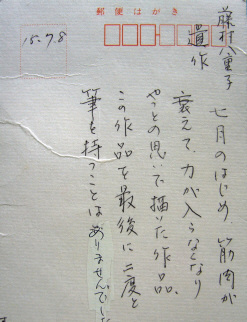 郵便はがき
15.7.8
藤村八重子
遺作
七月のはじめ、筋肉が
衰えて、力が入らなくなり
やっとの思いで描いた作品。
この作品を最後に二度と
筆を持つことはありませんでした